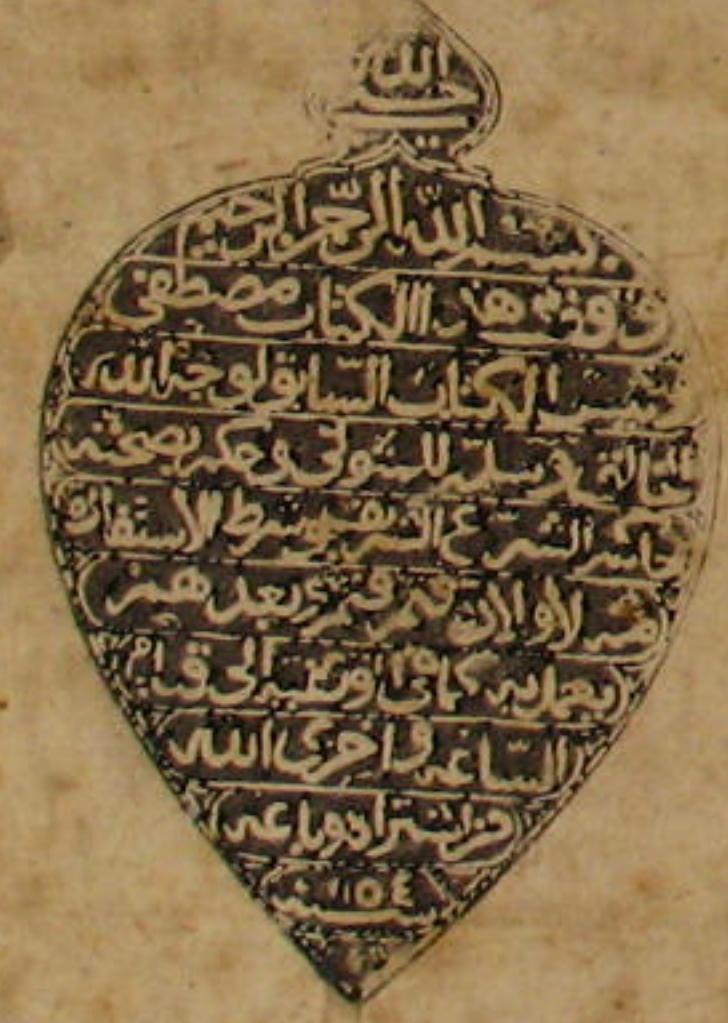 الله
حسبي
بسم الله الرحمن الرحيم
وقف هذا الكتاب مصطفى
رئيس الكتاب السابق لوجه الله
تعالى وسلمه للمتولي وحكم بصحته
حاكم الشرع الشريف بشرط الاستفادة
منه لاولاده
يعمل به الى قيام
الساعة واخزى الله
من اشتراه وباعه
سنة ١١٥٤